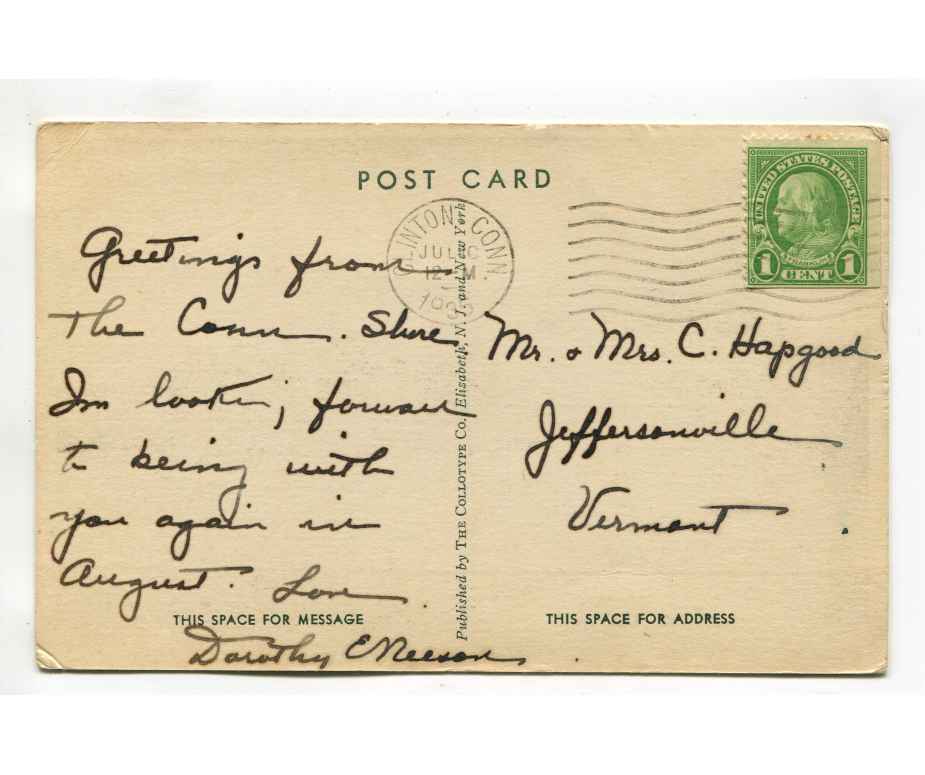 POST CARD
Greetings from
The Conn. Shore
Im looking forward
to being with
you again in
August. Love
THIS SPACE FOR MESSAGE
Dorothy
Published by THE COLLOTYPE CO., Elizabeth, N. J. and New York
CLINTON, CONN.
JUL
12 M
UNITED STATES POSTAGE
FRANKLIN
1 CENT 1
Mr. & Mrs. C. Hapgood
Jeffersonville
Vermont
THIS SPACE FOR ADDRESS